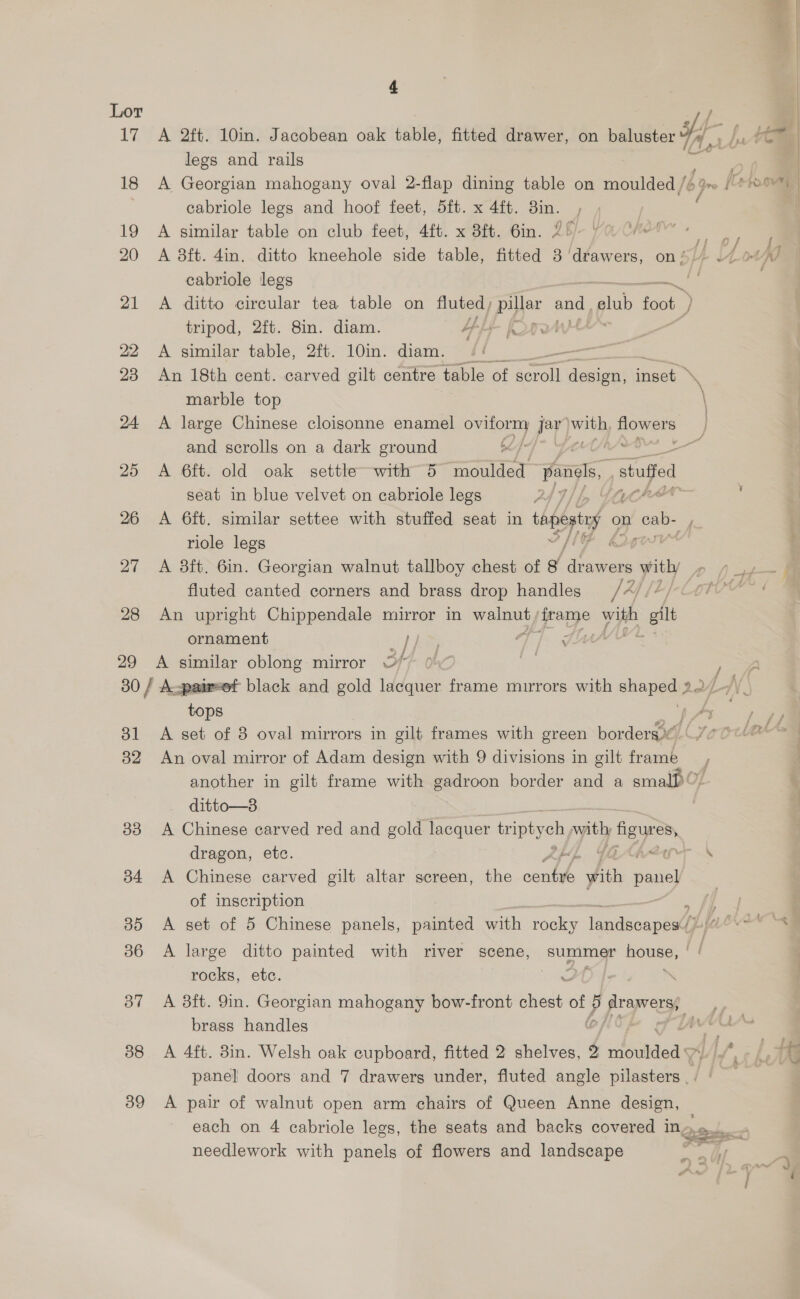 4
Lot
17 A 2ft. 10in. Jacobean oak table, fitted drawer, on baluster
legs and rails
18 A Georgian mahogany oval 2-flap dining table on moulded
cabriole legs and hoof feet, 5ft. x 4ft. 3in.
19 A similar table on club feet, 4ft. x 3ft. 6in.
20 A 3ft. 4in. ditto kneehole side table, fitted 3 drawers, on
cabriole legs
21 A ditto circular tea table on fluted pillar and club foot
tripod, 2ft. 8in. diam.
22 A similar table, 2ft. 10in. diam.
23 An 18th cent. carved gilt centre table of scroll design, inset
marble top
24 A large Chinese cloisonne enamel oviform jar with flowers
and scrolls on a dark ground
25 A 6ft. old oak settle with 5 moulded panels, stuffed
seat in blue velvet on cabriole legs
26 A 6ft. similar settee with stuffed seat in tapestry on cab-
riole legs
27 A 3ft. 6in. Georgian walnut tallboy chest of 8 drawers with
fluted canted corners and brass drop handles
28 An upright Chippendale mirror in walnut frame with gilt
ornament
29 A similar oblong mirror
30 / A pair of black and gold lacquer frame mirrors with shaped
tops
31 A set of 3 oval mirrors in gilt frames with green borders
32 An oval mirror of Adam design with 9 divisions in gilt frame
another in gilt frame with gadroon border and a small
ditto—3
33 A Chinese carved red and gold lacquer triptych with figures,
dragon, etc.
34 A Chinese carved gilt altar screen, the centre with panel
of inscription
35 A set of 5 Chinese panels, painted with rocky landscapes
36 A large ditto painted with river scene, summer house,
rocks, etc.
37 A 3ft. 9in. Georgian mahogany bow-front chest of 5 drawers,
brass handles
38 A 4ft. 3in. Welsh oak cupboard, fitted 2 shelves, 2 moulded
panel doors and 7 drawers under, fluted angle pilasters
39 A pair of walnut open arm chairs of Queen Anne design,
each on 4 cabriole legs, the seats and backs covered in
needlework with panels of flowers and landscape